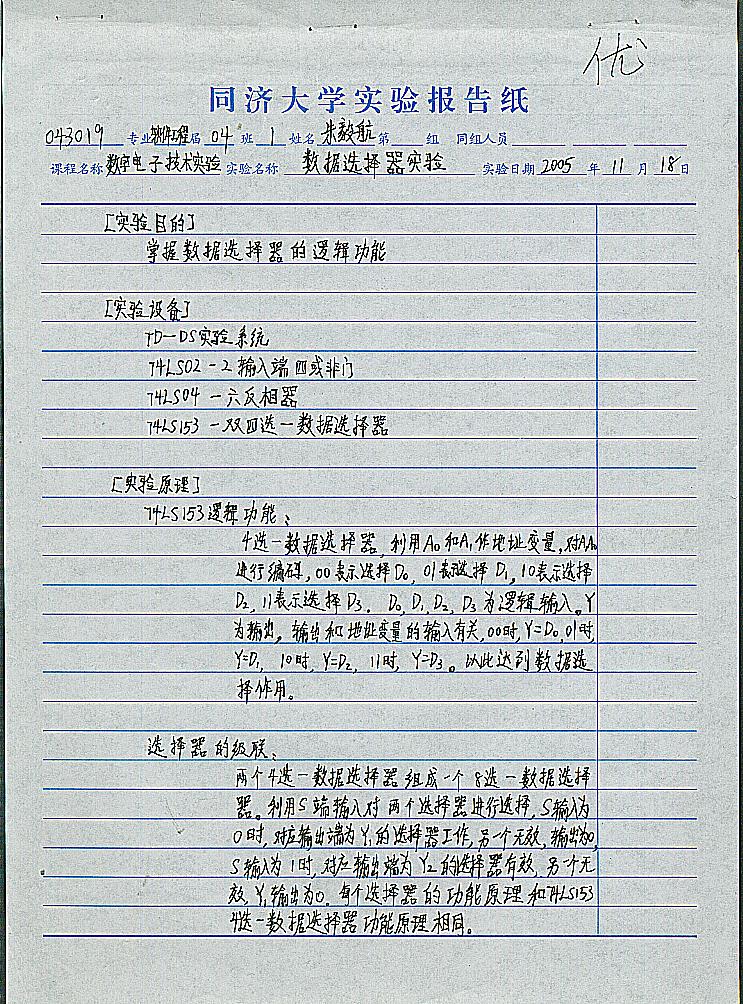 优
同济大学实验报告纸
043019 专业 软件工程 届 04 班 1 姓名 朱毅航 第 组 同组人员
课程名称 数字电子技术实验 实验名称 数据选择器实验 实验日期 2005 年 11 月 18 日
[实验目的]
掌握数据选择器的逻辑功能
[实验设备]
TD-DS实验系统
74LS02-2输入端四或非门
74LS04-六反相器
74LS153-双四选一数据选择器
[实验原理]
74LS153逻辑功能:
4选一数据选择器,利用A0和A1作地址变量,对A1A0
进行编码,00表示选择D0,01表示选择D1,10表示选择
D2,11表示选择D3。D0,D1,D2,D3为逻辑输入。Y
为输出。输出和地址变量的输入有关,00时,Y=D0,01时,
Y=D1,10时,Y=D2,11时,Y=D3。以此达到数据选
择作用。
选择器的级联:
两个4选一数据选择器组成一个8选一数据选择
器。利用S端输入对两个选择器进行选择,S输入为
0时,对应输出端为Y1的选择器工作,另一个无效,输出为0,
S输入为1时,对应输出端为Y2的选择器有效,另一个无
效,Y1输出为0。每个选择器的功能原理和74LS153
4选一数据选择器功能原理相同。